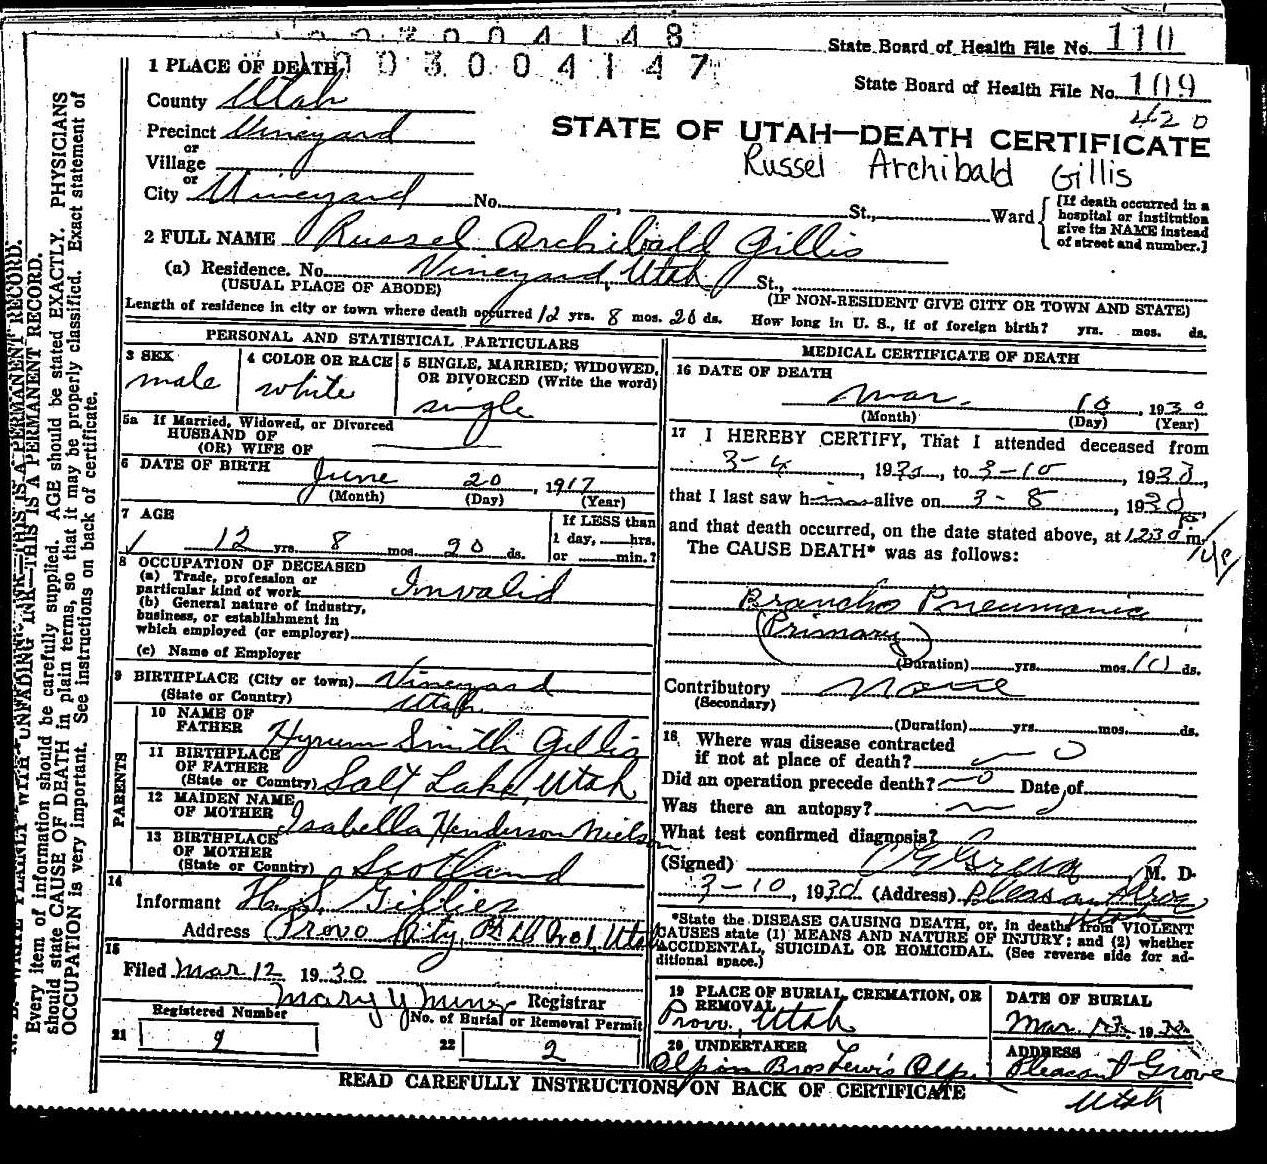 0 0 3 0 0 4 1 4 8
State Board of Health File No. 110
0 0 3 0 0 4 1 4 7
State Board of Health File No. 109
420
1 PLACE OF DEATH
County Utah
Precinct Vineyard
or
Village
or
City Vineyard No. , St., Ward
[If death occurred in a hospital or institution give its NAME instead of street and number.]
STATE OF UTAH—DEATH CERTIFICATE
Russel Archibald Gillis
2 FULL NAME Russel Archibald Gillis
(a) Residence. No. Vineyard, Utah St.,
(USUAL PLACE OF ABODE) (IF NON-RESIDENT GIVE CITY OR TOWN AND STATE)
Length of residence in city or town where death occurred 12 yrs. 8 mos. 20 ds. How long in U. S., if of foreign birth? yrs. mos. ds.
PERSONAL AND STATISTICAL PARTICULARS
3 SEX
male
4 COLOR OR RACE
white
5 SINGLE, MARRIED, WIDOWED, OR DIVORCED (Write the word)
single
5a If Married, Widowed, or Divorced
HUSBAND OF
(OR) WIFE OF
6 DATE OF BIRTH
June 20, 1917
(Month) (Day) (Year)
7 AGE
12 yrs. 8 mos. 20 ds.
If LESS than
1 day, hrs.
or min.?
8 OCCUPATION OF DECEASED
(a) Trade, profession or
particular kind of work Invalid
(b) General nature of industry,
business, or establishment in
which employed (or employer)
(c) Name of Employer
9 BIRTHPLACE (City or town) Vineyard
(State or Country) Utah
PARENTS
10 NAME OF
FATHER Hyrum Smith Gillis
11 BIRTHPLACE
OF FATHER
(State or Country) Salt Lake, Utah
12 MAIDEN NAME
OF MOTHER Isabella Henderson Nielson
13 BIRTHPLACE
OF MOTHER
(State or Country) Scotland
14
Informant H. S. Gillies
Address Provo City, Utah
15
Filed Mar 12 1930
Mary Y Miner Registrar
Registered Number
21 9
No. of Burial or Removal Permit
22 2
MEDICAL CERTIFICATE OF DEATH
16 DATE OF DEATH
Mar. 10, 1930
(Month) (Day) (Year)
17 I HEREBY CERTIFY, That I attended deceased from
3-4, 1930, to 3-10, 1930,
that I last saw h alive on 3-8, 1930,
and that death occurred, on the date stated above, at 1230 P m.
The CAUSE DEATH* was as follows:
Broncho Pneumonia
(Primary)
(Duration) yrs. mos. 10 ds.
Contributory None
(Secondary)
(Duration) yrs. mos. ds.
18 Where was disease contracted
if not at place of death?
Did an operation precede death? no Date of
Was there an autopsy? no
What test confirmed diagnosis?
(Signed) M. D.
3-10, 1930 (Address) Pleasant Grove Utah
*State the DISEASE CAUSING DEATH, or, in deaths from VIOLENT
CAUSES state (1) MEANS AND NATURE OF INJURY; and (2) whether
ACCIDENTAL, SUICIDAL OR HOMICIDAL. (See reverse side for ad-
ditional space.)
19 PLACE OF BURIAL, CREMATION, OR
REMOVAL
Provo, Utah
DATE OF BURIAL
Mar. 12 1930
20 UNDERTAKER
ADDRESS
Pleasant Grove
Utah
READ CAREFULLY INSTRUCTIONS ON BACK OF CERTIFICATE
THIS IS A PERMANENT RECORD.
WRITE PLAINLY WITH UNFADING INK—THIS IS A PERMANENT RECORD.
Every item of information should be carefully supplied. AGE should be stated EXACTLY. PHYSICIANS
should state CAUSE OF DEATH in plain terms, so that it may be properly classified. Exact statement of
OCCUPATION is very important. See instructions on back of certificate.